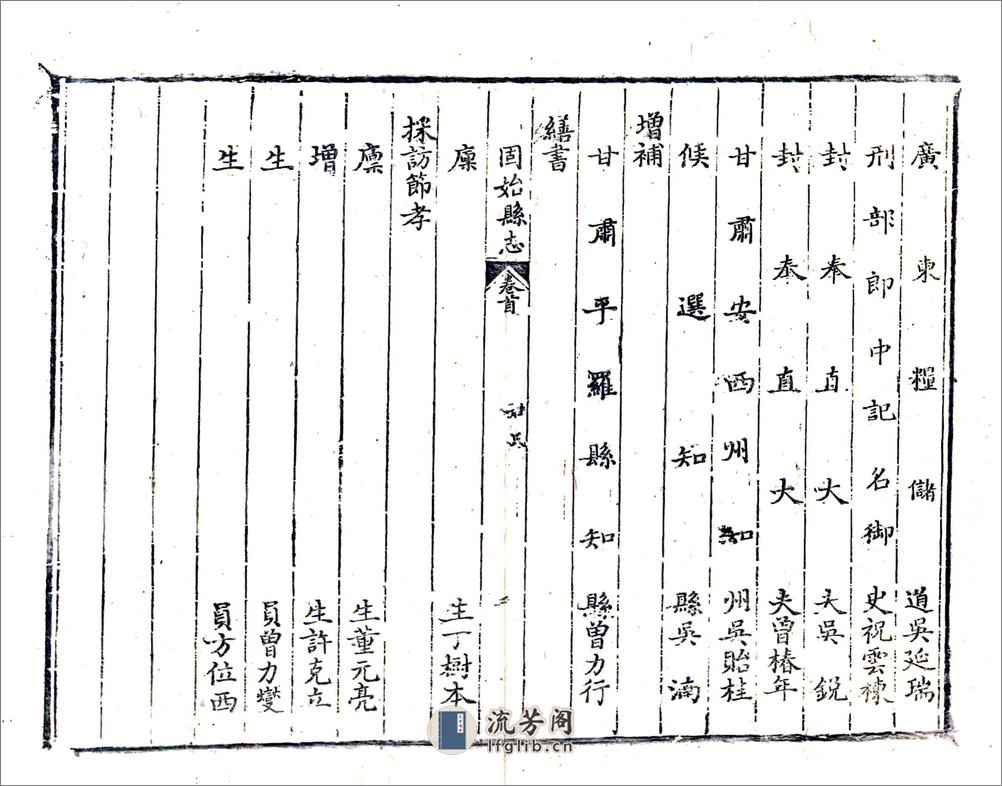 廣東糧儲道吳延瑞
刑部郎中記名御史祝雲棟
封奉直大夫吳銳
封奉直大夫曾椿年
甘肅安西州知州吳貽桂
候選知縣吳湳
增補
甘肅平羅縣知縣曾力行
繕書
固始縣志 卷首 二
廩生丁樹本
採訪節孝
廩生董元亮
增生許克立
生員曾力燮
生員方位西
流芳阁
lfglib.cn